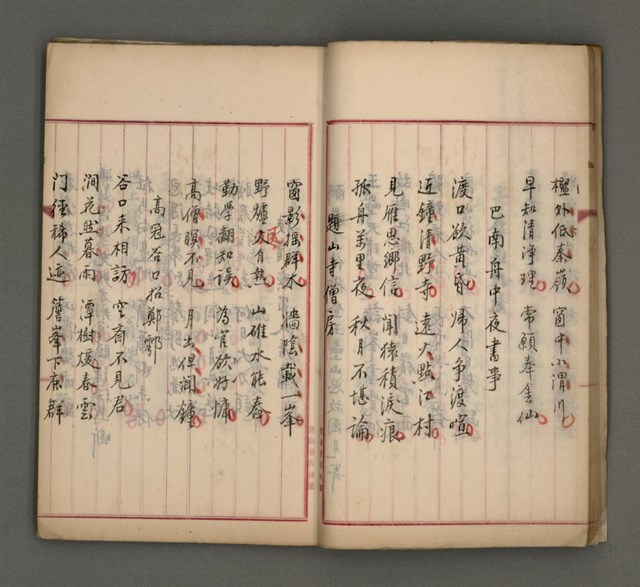 檻外低秦嶺 窗中小渭川
早知清淨理 常願奉金仙
巴南舟中夜書事
渡口欲黃昏 歸人爭渡喧
近鐘清野寺 遠火點江村
見雁思鄉信 聞猿積淚痕
孤舟萬里夜 秋月不堪論
題山寺僧房
窗影搖群木 墻陰載一峯
野爐風自熱 山碓水能舂
勤學翻知誤 為官欲好慵
高僧瞑不見 月出但聞鐘
高冠谷口招鄭鄠
谷口來相訪 空齋不見君
澗花然暮雨 潭樹煖春雲
门徑稀人迹 簷峯下鹿群